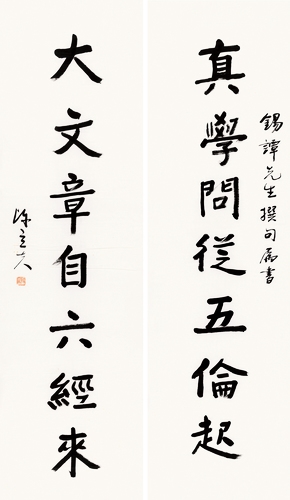 錫譚先生撰句屬書
真學問從五倫起
大文章自六經來
陳立夫